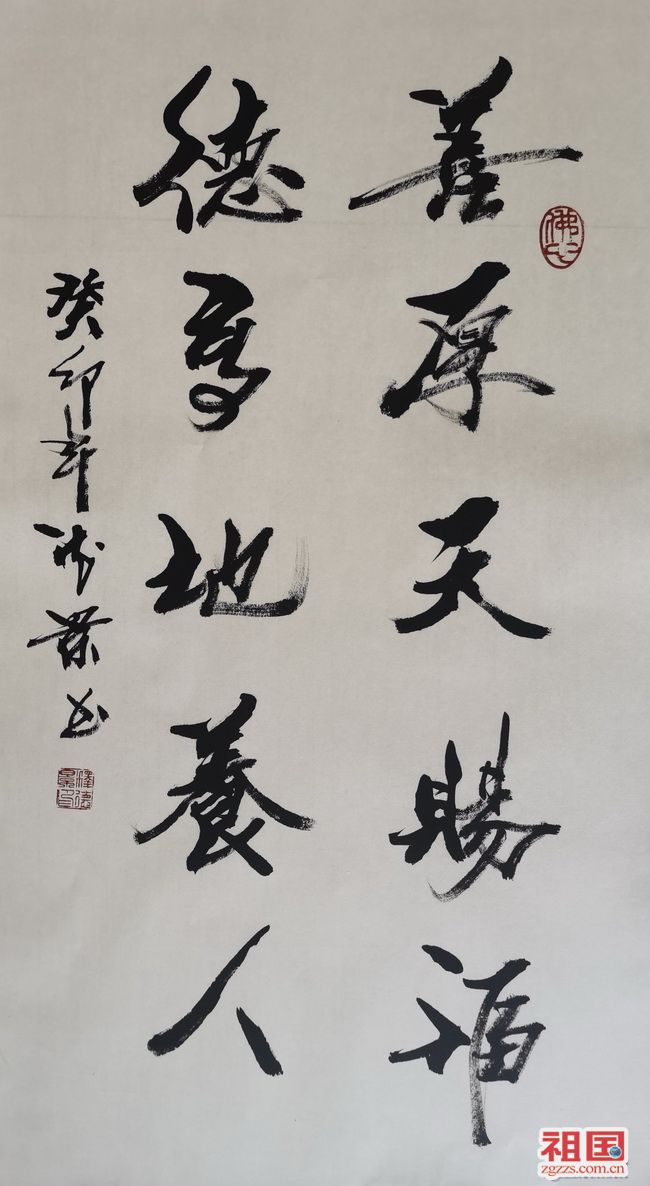 善原天賜福
德厚地養人
癸卯年
佛心
祖国
zgzzs.com.cn